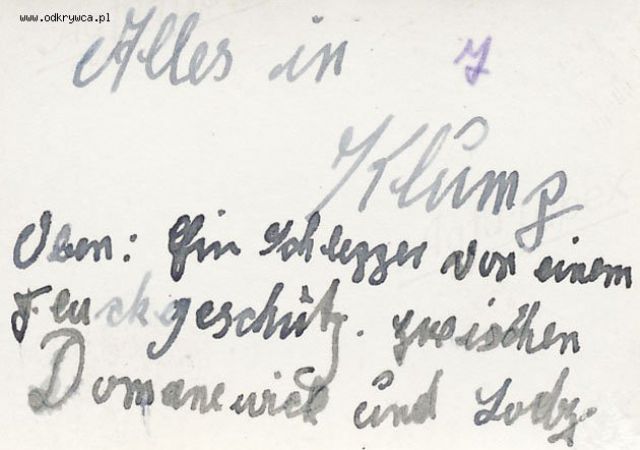 www.odkrywca.pl
Alles in 7
Klump
Oben: Ein Schlepper von einem
Flackgeschütz. zwischen
Domanewick und Lodz.